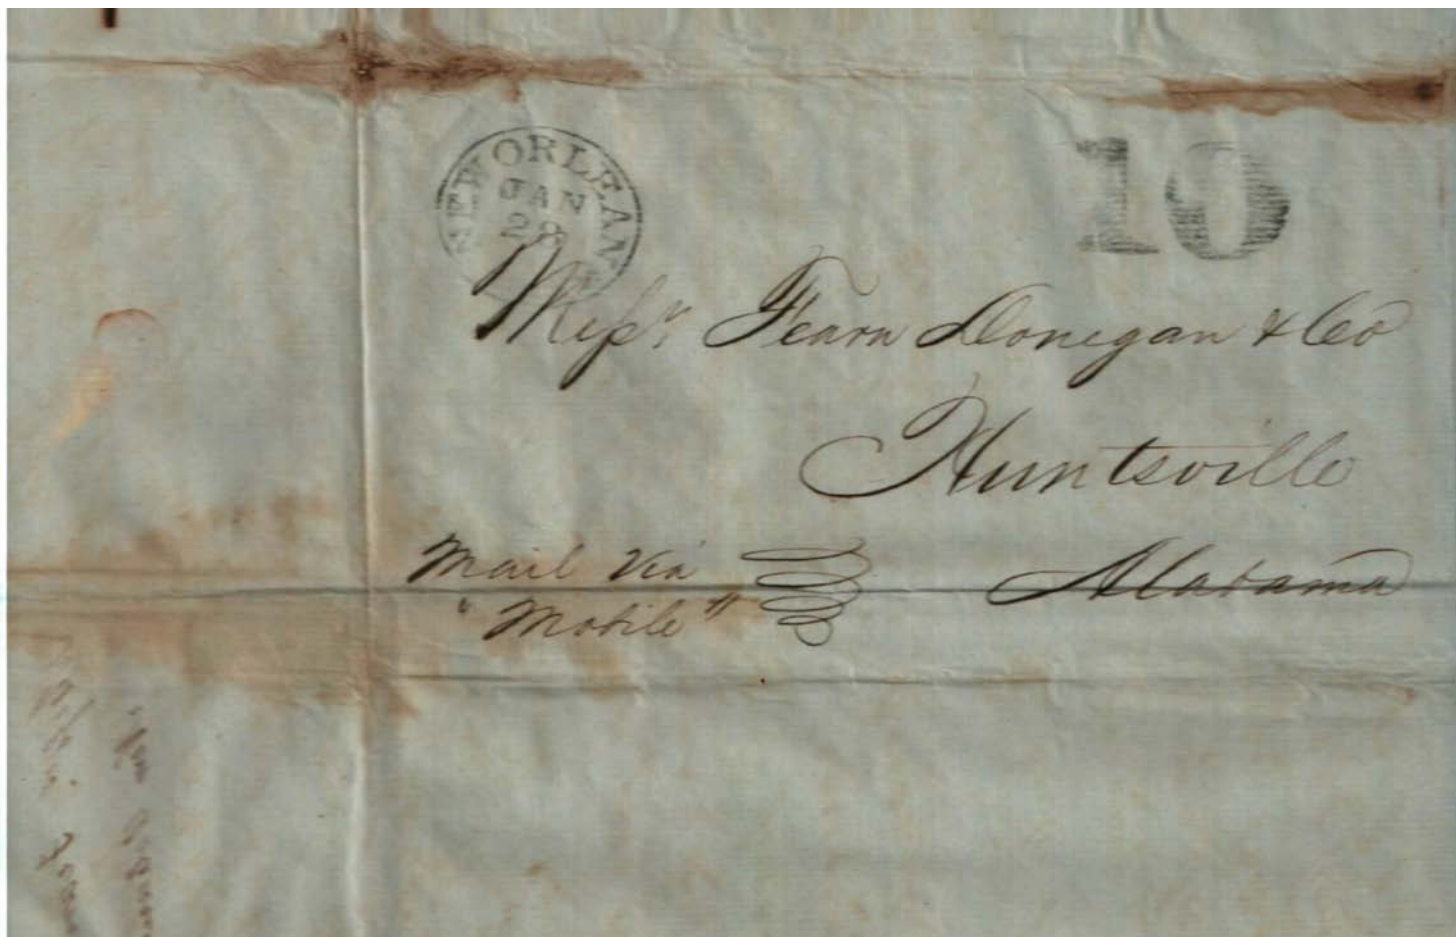 NEW ORLEANS
JAN
28
10
Messrs. Fearn Donegan & Co
Huntsville
Alabama
Mail Via
"Mobile"